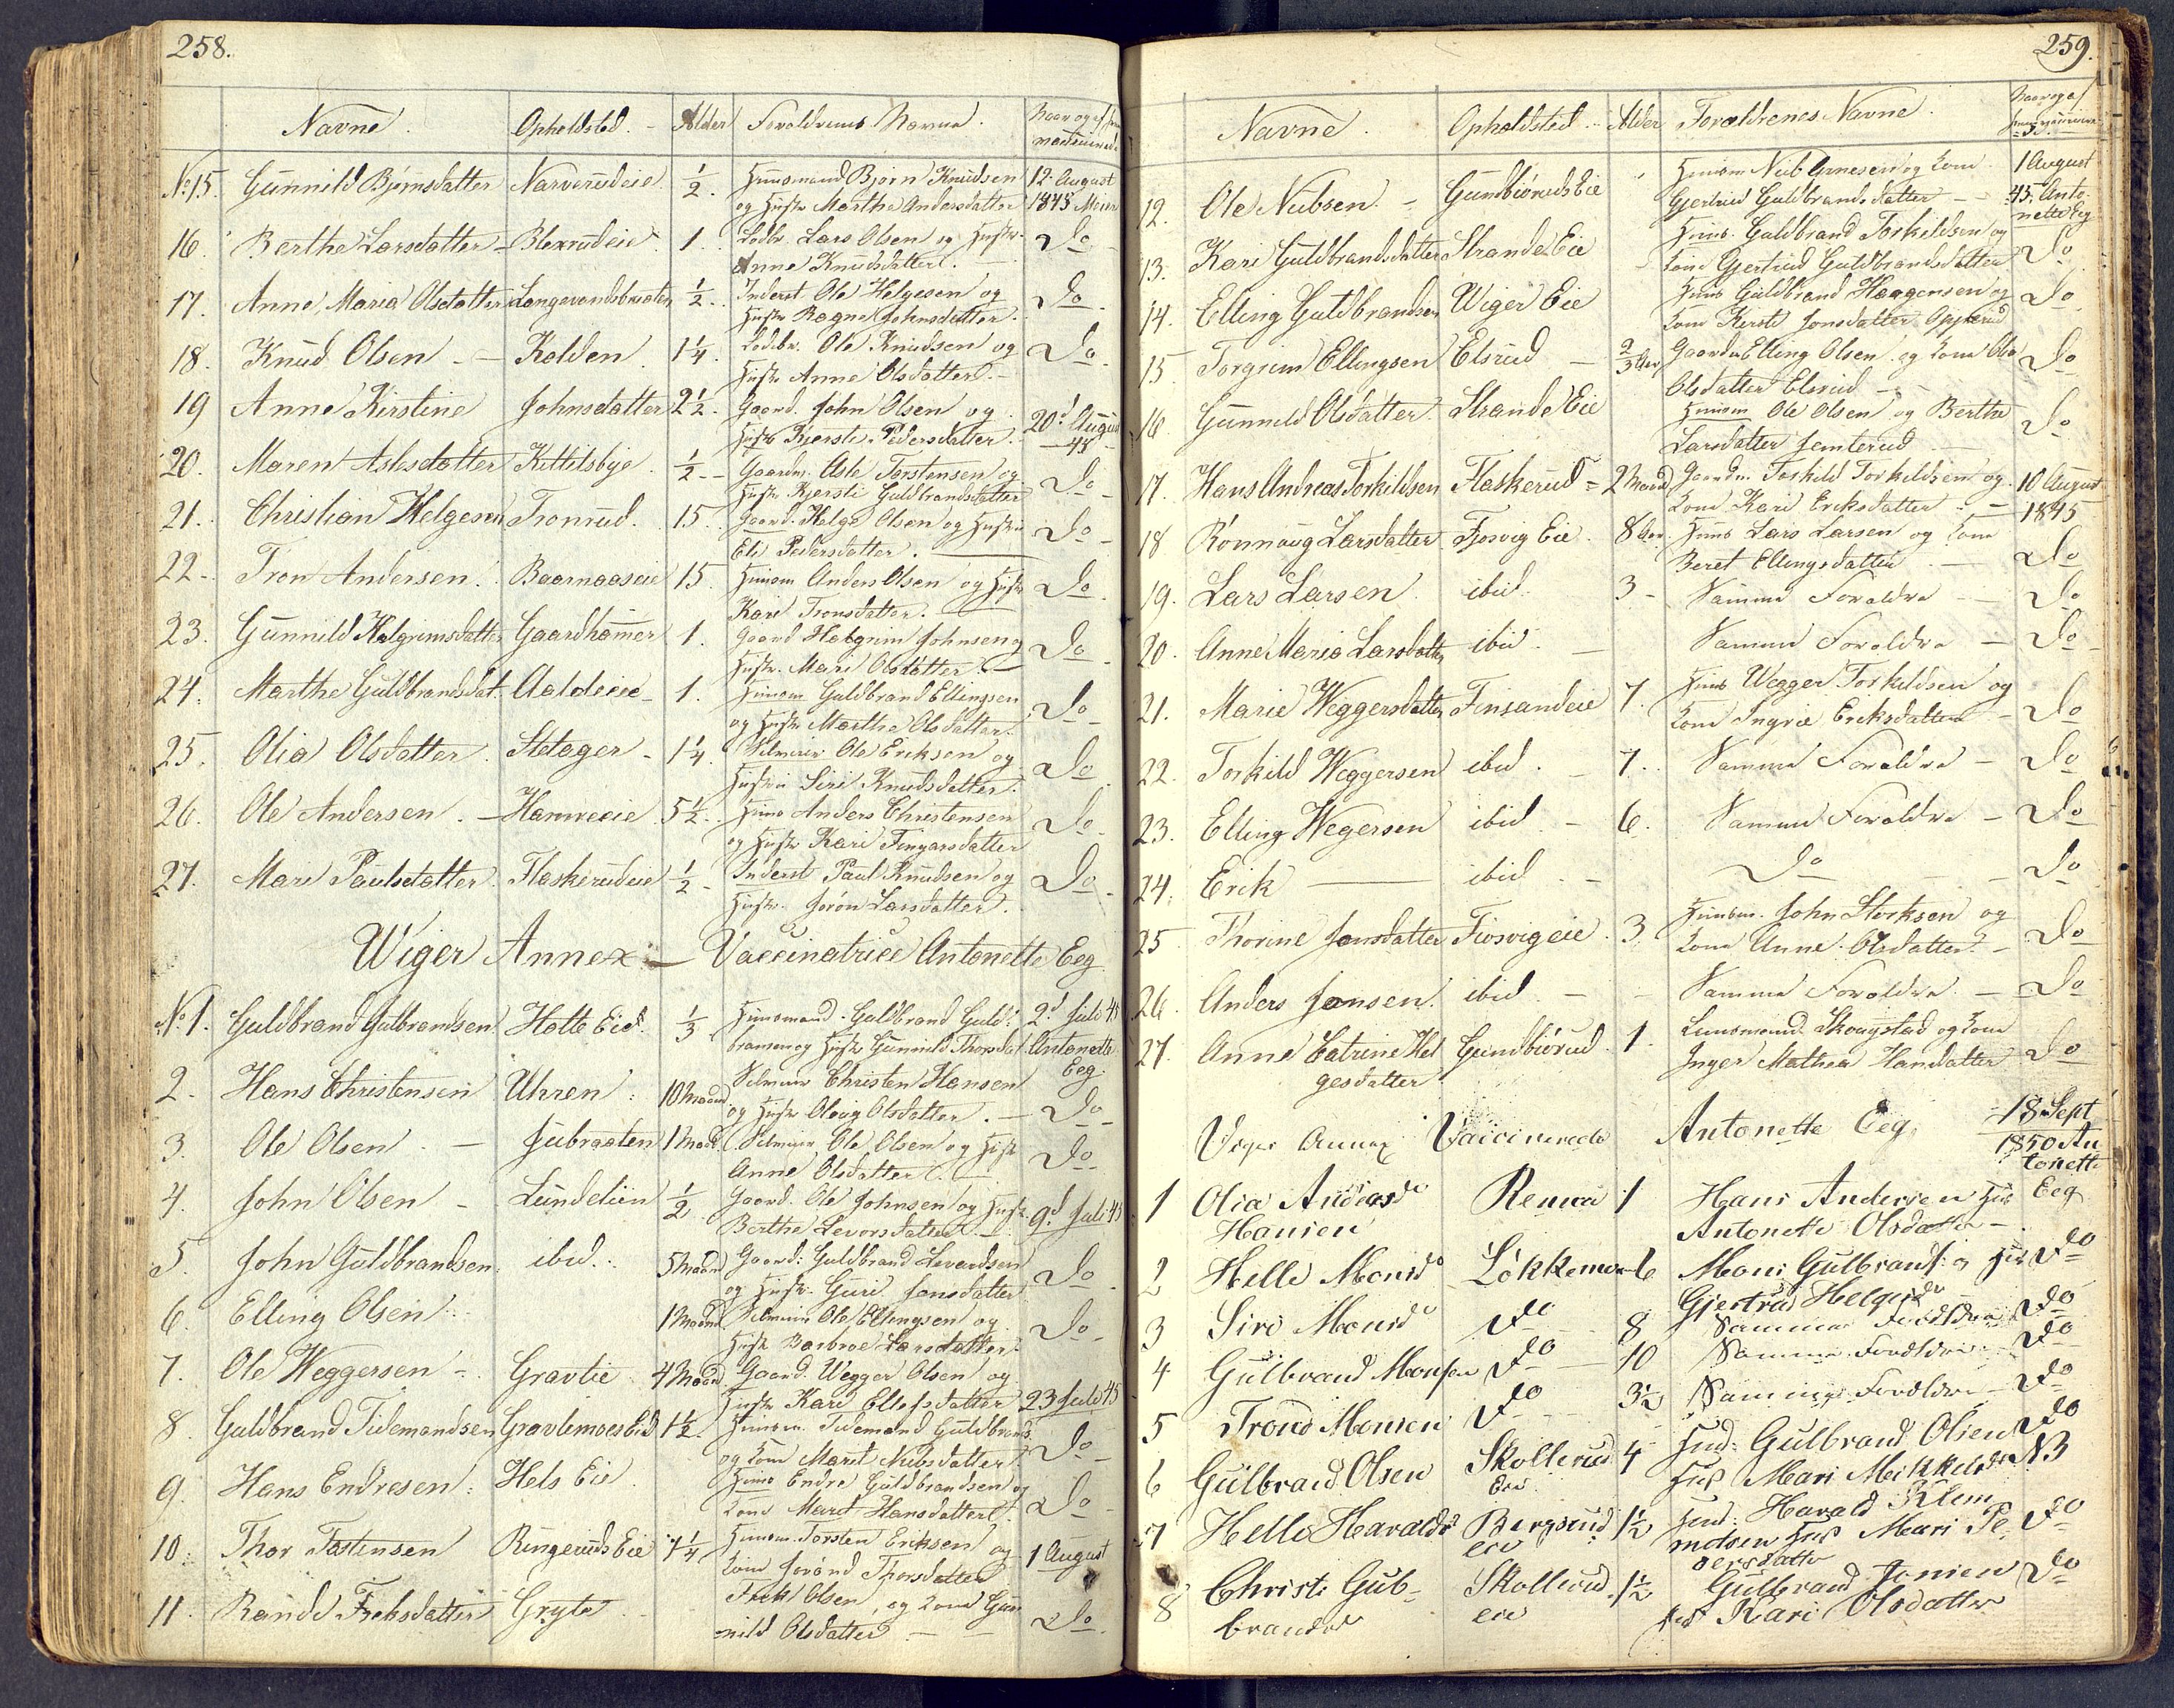 258.
Navne. Opholdsted. Alder Forældrenes Navne. Naar og af
No 15. Gunnild Bjørnsdatter Narverudeie 1/2. Huusmand Bjørn Knudsen 12. August
og Hustr Marthe Andersdatter 1845
16. Berthe Larsdatter Blexrudeie 1. Lars Olsen og Hustr. Do
Anne Knudsdatter.
17. Anne Maria Olsdatter Langevandsbraaten 1/2. Inderst Ole Helgesen og Do
Hustr Ragne Johnsdatter.
18. Knud Olsen Kolden 1 1/4. Ole Knudsen og Do
Hustr Anne Olsdatter.
19 Anne Kirstine Johnsdatter 2 1/2. Gaard. John Olsen og 20d August
Hustr Kjersti Pedersdatter. 45
20. Maren Aslesdatter Kittilsbye 1/2 Gaardm. Asle Torstensen og Do
Hustr Kjersti Guldbrandsdatter
21. Christian Helgesen Tronrud. 15. Gaard. Helge Olsen og Hustru Do
Eli Pedersdatter.
22. Tron Andersen. Baarnaaseie 15. Huusm Anders Olsen og Hustr Do
Kari Tronsdatter.
23. Gunnild Halgrimsdatter Gaardhammer 1. Gaard Halgrim Johnsen og Do
Hustr. Mari Olsdatter.
24. Marthe Guldbrandsdat. Aaldeeie 1. Huusm Guldbrand Ellingsen Do
og Hustr Marthe Olsdatter.
25. Olia Olsdatter. Sletager 1 1/4. Selveier Ole Eriksen og Do
Hustru Siri Knudsdatter.
26. Ole Andersen. 5 1/2. Huus Anders Christensen Do
og Hustr Kari Fingarsdatter
27. Mari Paulsdatter. Flaskerudeie 1/2 Inderst Paul Knudsen og Do
Hustr. Jøron Larsdatter.
Wiger Annex — Vaccinatrice Antonette Eeg
No 1. Guldbrand Gulbrandsen. Holte Eie. 1/3 Huusmand. Guldbrand Guld 2d Juli 45
bransen og Hustr Gunnild Thorsdat Antonette
Eeg.
2. Hans Christensen Uhren 10 Maand Selveier Christen Hansen
og Hustr Olaug Olsdatter. Do
3. Ole Olsen Jubraaten 1 Maan Selveier Ole Olsen og Hustr Do
Anne Olsdatter.
4. John Olsen Lundelien 1/2 Gaard. Ole Johnsen og Hustr
Berthe Levorsdatter 9d Juli 45
5. John Guldbrandsen. ibid. 5 Maand Gaard: Guldbrand Levordsen Do
og Hustr. Guri Jonsdatter
6. Elling Olsen 1 Maand Selveier Ole Ellingsen og Do
Hustr Barbroe Larsdatter
7. Ole Weggersen Gravlie 4 Maand Gaard. Wegger Olsen og
Hustr Kari Ellefsdatter 23 Juli 45
8. Guldbrand Tidemandsen Gravlemoes Eie 1 1/2 Huusm. Tidemand Guldbrands. Do
og Kone Marit Nubsdatter
9. Hans Endresen. Hels Eie Huus Endre Guldbrandsen og Do
Kone Marit Hansdatter.
10. Thor Tostensen Ringeruds Eie 1 1/4 Huusm. Torsten Eriksen og 1 August
Kone Jorand Thorsdatter
11. Rande Gryte Olsen, og Kone Gun Do
nild Olsdatter
259.
Navne. Opholdsted Alder Forældrenes Navne. Naar og af
12. Ole Nubsen. Gundbiøruds Eie Huusm Nub Arnesen og Kone 1 August
Gjertrud Guldbrandsdatter 45. Anto
nette Eeg
13. Kari Guldbrandsdatter Strande Eie Huus. Guldbrand Torkildsen og Do
Kone Gjertrud Guldbrandsdatter
14. Elling Guldbrandsen Wiger Eie Huus Guldbrand Haagensen og Do
Kone Kersti Jonsdatter
15 Torgrim Ellingsen Elsrud 2/3 Aar Gaardm Elling Olsen og Kone Olia Do
Olsdatter Elsrud
16. Gunnild Olsdatter. Strande Eie Huusm Ole Olsen og Berthe Do
Larsdatter Semterud
17. Hans Andreas Torkildsen Flaskerud 2 Maand Gaardm. Torkild Torkildsen og 10 August
Kone Kari Eriksdatter 1845
18 Rønnaug Larsdatter Fjosvig Eie 8 Aar. Huus Lars Larsen og Kone Do
Beret Ellingsdatter
19. Lars Larsen ibid. 3 Samme Forældre Do
20. Anne Maria Larsdatter ibid. Samme Forældre Do
21. Marie Weggersdatter Finsandeie 7. Huus Wegger Torkildsen og Do
Kone Ingrie Eriksdatter
22. Torkild Weggersen ibid. 7. Samme Forældre Do
23. Elling Wegersen ibid 6. Samme Forældre Do
24. Erik ibid. Do Do
25 Thorine Jonsdatter Fiosvigeie 3 Huusm. John Storksen og Do
Kone Anne Olsdatter.
26. Anders Jonsen. ibid Samme Forældre. Do
27. Anne Catrine Hel Gundbiørud. 1. Lensmand Skougstad og Kone Do
gesdatter Inger Mathea Hansdatter
Viger Annex Vaccinerede Antonette Eeg. 18 Sept
1850 An
tonette
1 Olia Andreas Remen 1 Hans Andersen Hus Eeg
Hansen Antonette Olsdatter
2 Helle Monsd Løkkemoen 6 Mons Gulbrands. og Hus Do
Gjertrud Helgesdr
3 Siri Monsd Do 8 Samme Forældre Do
4 Gulbrand Monsen Do 10 Samme Forældre Do
5 Trond Monsen Do 3 1/2 Samme Forældre Do
6 Gulbrand Olsen Skollerud 4 Gulbrand Olsen Do
Eie Hus Mari Mikkelsdr NB
7 Helle Haralds Bergsrud 1 1/2 Harald Klem
eie metsen Hus Mari Pe Do
dersdatter
8 Christi Gul Skollerud 1 1/2 Gulbrand Jonsen Do
brandsd eie Hus Kari Olsdatter